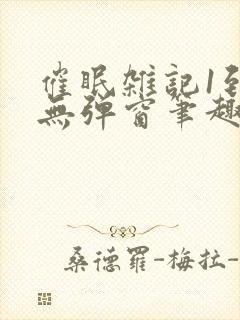 催眠雑記1到
無弹窗筆趣
桑德羅-梅拉-